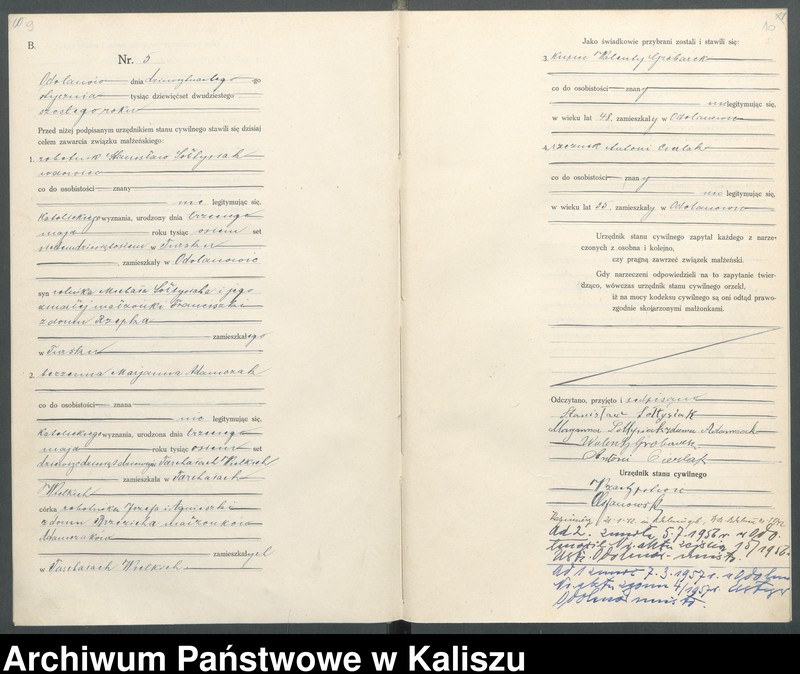 9
B.
Nr. 5
Odolanów dnia dziewiętnastego go
stycznia tysiąc dziewięćset dwudziestego
szóstego roku
Przed niżej podpisanym urzędnikiem stanu cywilnego stawili się dzisiaj
celem zawarcia związku małżeńskiego:
1. robotnik Stanisław Sołtysiak
co do osobistości znany
nie legitymując się,
Katolickiego wyznania, urodzony dnia trzeciego
maja roku tysiąc osiem set
w
zamieszkały w Odolanowie
syn rolnika Sołtysiaka i jego
zmarłej małżonki Franciszki
z domu Rzepka
zamieszkałego
w
2. bezżenna Marjanna Adamczak
co do osobistości znana
nie legitymując się,
Katolickiego wyznania, urodzona dnia trzeciego
maja roku tysiąc osiem set
w Tarchałach Wielkich
zamieszkała w Tarchałach
Wielkich
córka robotnika Józefa i Agnieszki
z domu małżonków
Adamczaków
zamieszkałych
w Tarchałach Wielkich
10
Jako świadkowie przybrani zostali i stawili się:
3. Walenty Grobarek
co do osobistości znany
nie legitymując się,
w wieku lat 48, zamieszkały w Odolanowie
4. Antoni Cieślak
co do osobistości znany
nie legitymując się,
w wieku lat 35, zamieszkały w Odolanowie
Urzędnik stanu cywilnego zapytał każdego z narze-
czonych z osobna i kolejno,
czy pragną zawrzeć związek małżeński.
Gdy narzeczeni odpowiedzieli na to zapytanie twier-
dząco, wówczas urzędnik stanu cywilnego orzekł,
iż na mocy kodeksu cywilnego są oni odtąd prawo-
zgodnie skojarzonymi małżonkami.
Odczytano, przyjęto i podpisano
Stanisław Sołtysiak
Marjanna Sołtysiak z domu Adamczak
Walenty Grobarek
Antoni Cieślak
Urzędnik stanu cywilnego
W zastępstwie
Ad 2. zmarła 5.7.1956 r. w Odo.
Nr aktu zejścia 15/1956
Ad 1 zmarł 7.3.1957 r. w Odolan
Nr aktu zgonu 4/1957r.
Archiwum Państwowe w Kaliszu